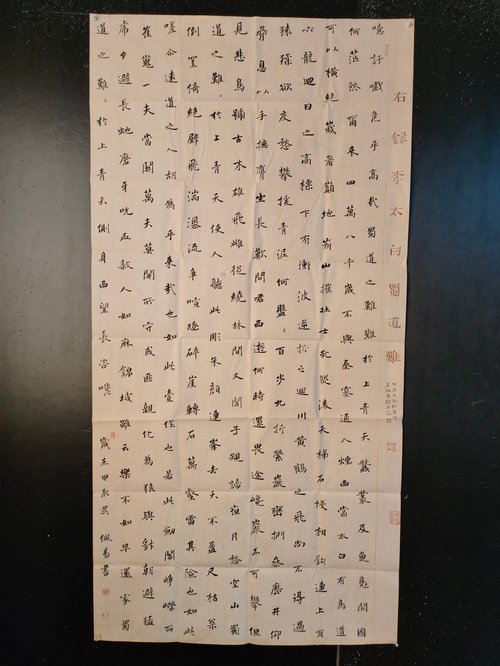 右録李太白蜀道難
噫訏嚱危乎高哉蜀道之難難於上青天蠶叢及魚鳧開國
何茫然爾来四萬八千歲不與秦塞通人煙西當太白有鳥道
可以橫絕峩眉巔地崩山摧壮士死然後天梯石棧相鉤連上有
六龍迴日之高標下有衝波逆折之迴川黃鶴之飛尚不得過
猿猱欲度愁攀援青泥何盤:百步九折縈巖巒捫參歷井仰
脅息以手撫膺坐長歎問君西遊何時還畏途巉巖不可攀但
見悲鳥號古木雄飛雌從繞林間又聞子規啼夜月愁空山蜀
道之難:於上青天使人聽此彫朱顏連峯去天不盈尺枯松
倒挂倚絕壁飛湍瀑流爭喧豗砯崖轉石萬壑雷其險也如此
嗟尒遠道之人胡為乎来哉也如此壹作也若此劒閣崢嶸而
崔嵬一夫當關萬夫莫開所守或匪親化為狼與豺朝避猛
虎夕避長虵磨牙吮血殺人如麻錦城雖云樂不如早還家蜀
道之難:於上青天側身西望長咨嗟 歲在甲辰吳佩易書